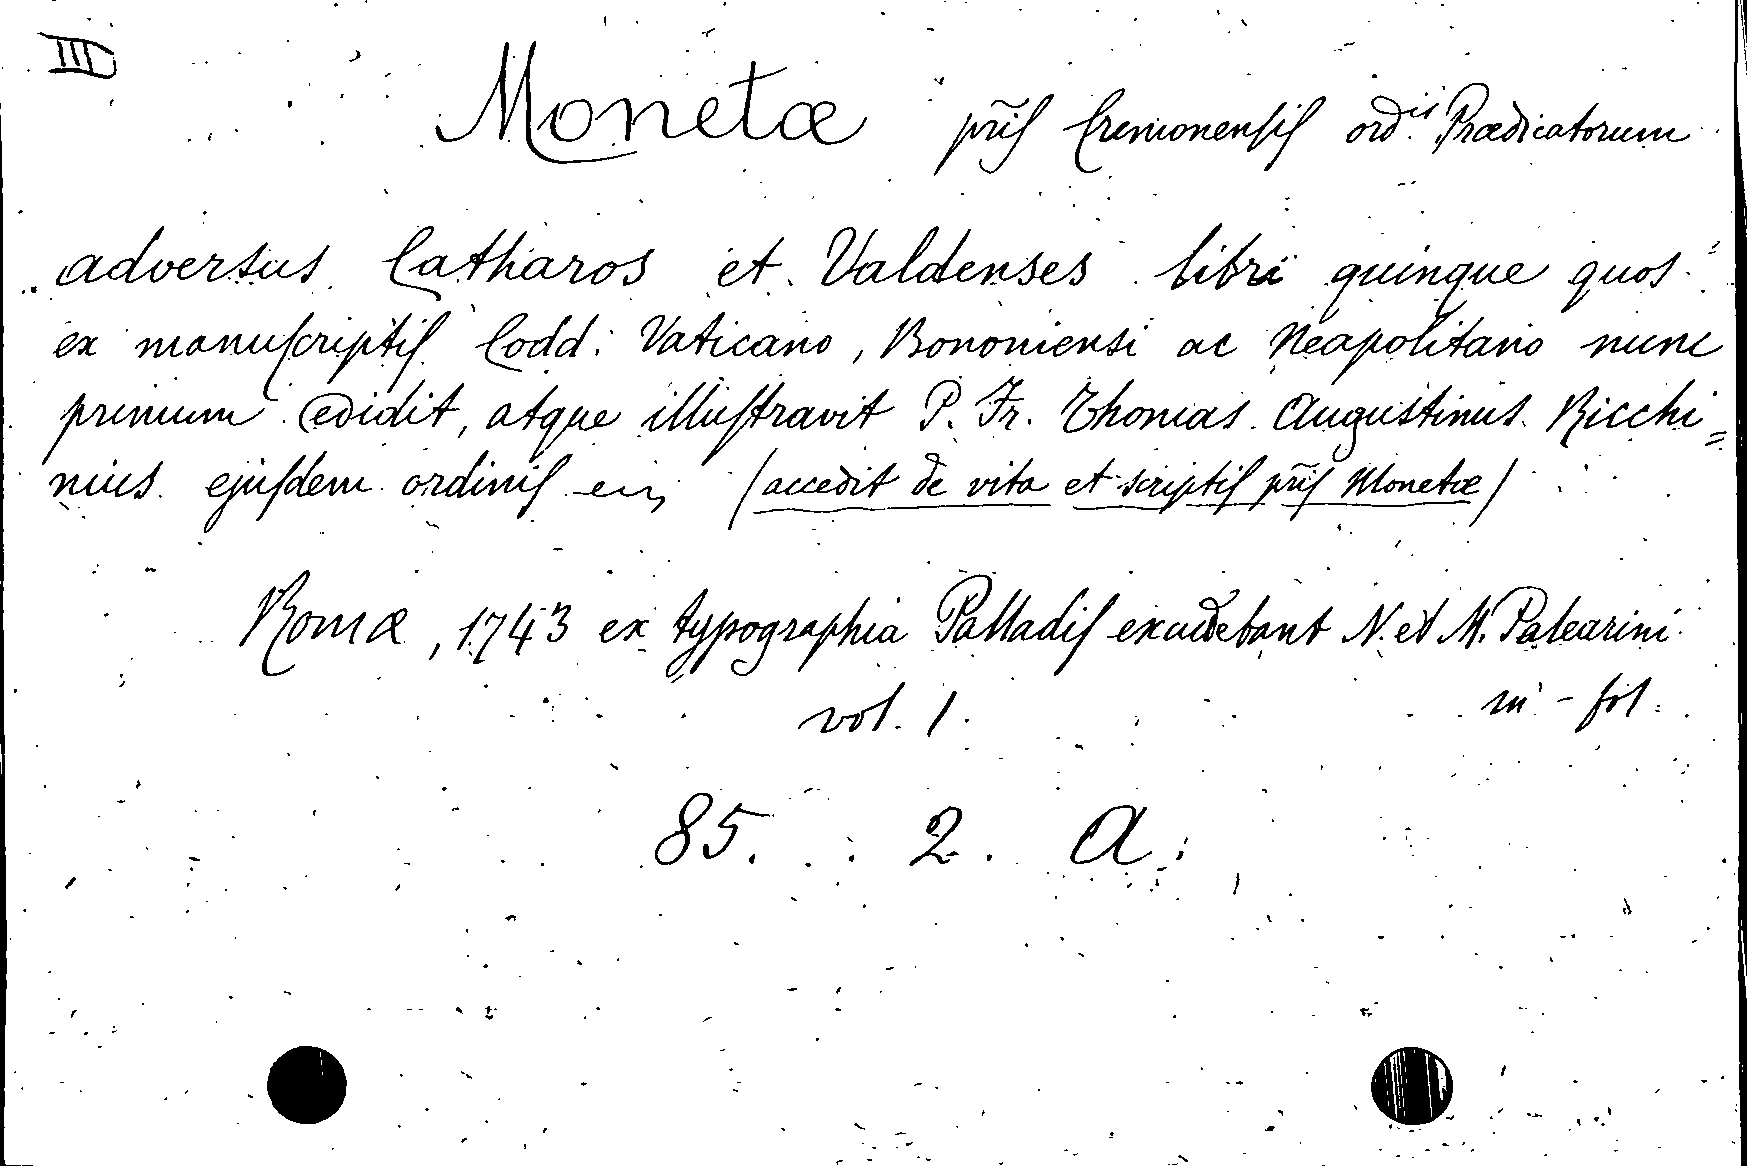 III
Monetæ pr̃is Cremonensis ord:ii Prædicatorum
adversus Catharos et Valdenses libri quinque quos
ex manuscriptis Codd: Vaticano, Bononiensi ac Neapolitano nunc
primum edidit, atque illustravit P. Fr. Thomas Augustinus Ricchi=
nius ejusdem ordinis (accedit de vita et scriptis pr̃is Monetæ)
Romæ, 1743 ex typographia Palladis excudebant N. et M. Palearini
vol. 1. in-fol.
85. 2. A.